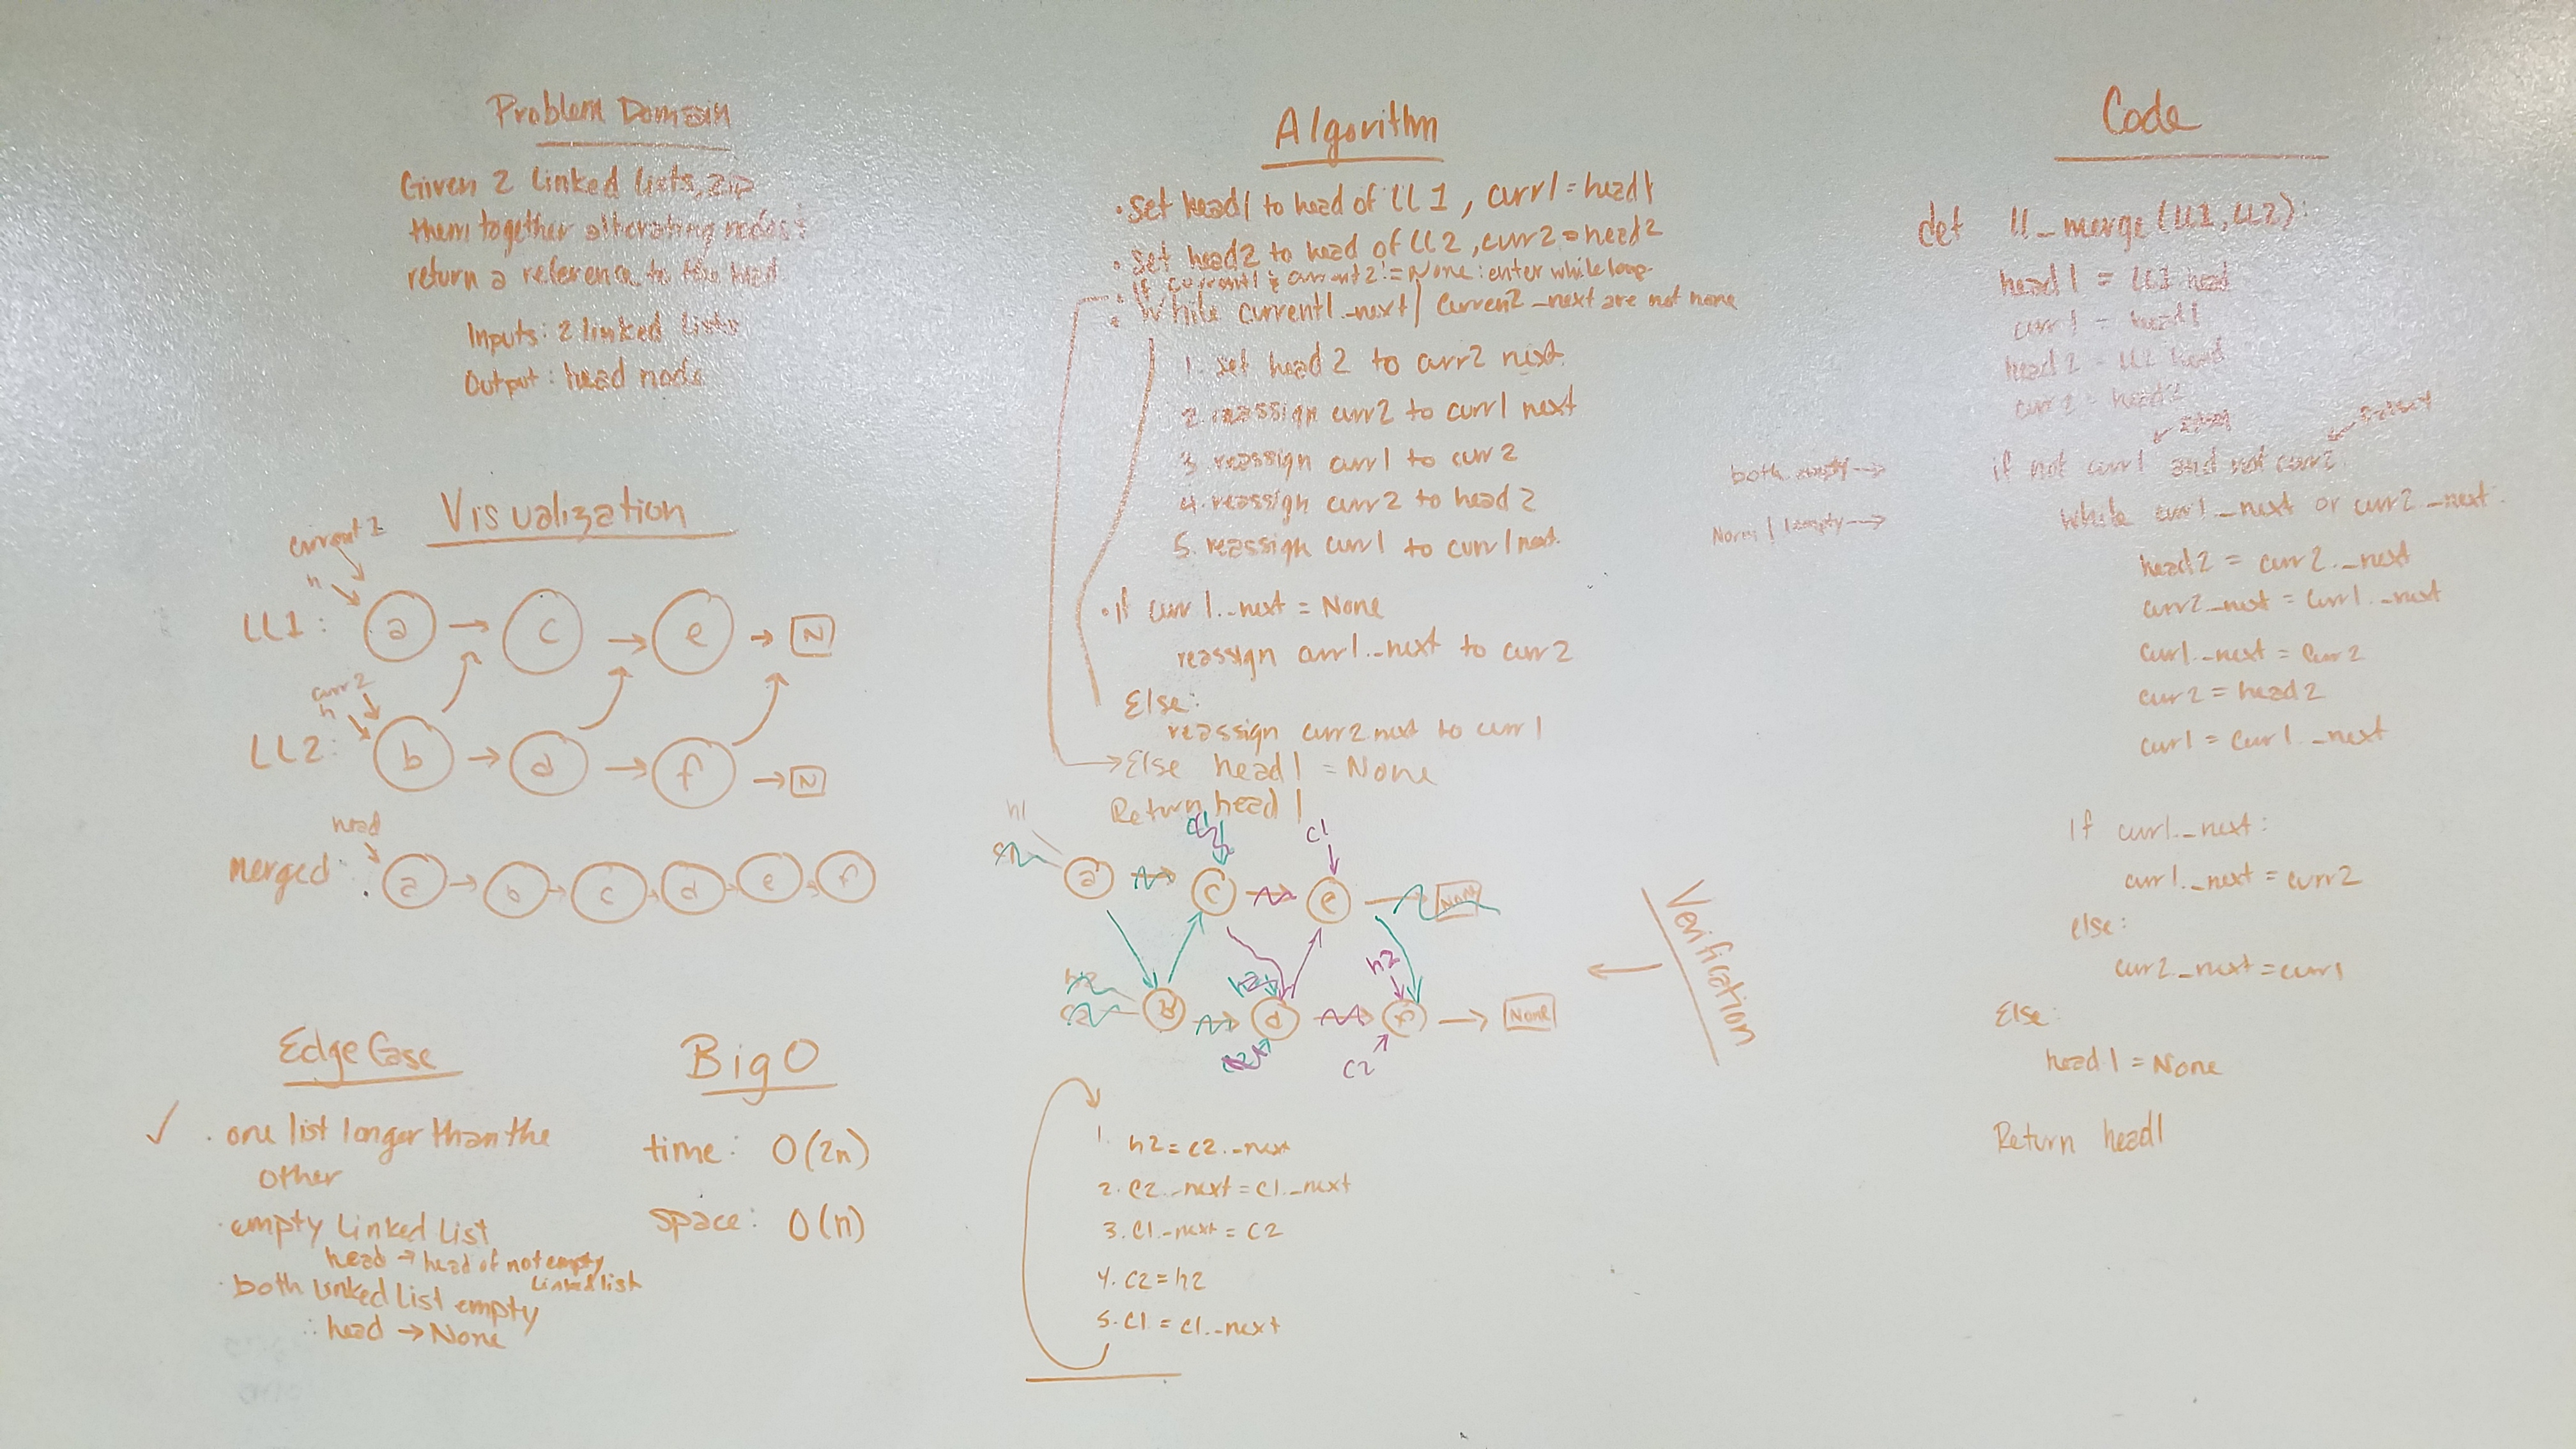 Problem Domain
Given 2 linked lists, zip
them together alternating nodes &
return a reference to the head
Inputs: 2 linked lists
Output: head node
Visualization
current 1
h
LL1: a → c → e → N
curr 2
h
LL2: b → d → f → N
head
merged: a → b → c → d → e → f
Edge Case
✓ · one list longer than the
other
· empty Linked List
head → head of not empty
Linked list
· both Linked List empty
∴ head → None
Big O
time: O(2n)
space: O(n)
Algorithm
· set head1 to head of LL1, curr1 = head1
· set head2 to head of LL2, curr2 = head2
· If current1 & current2 != None: enter while loop
· While current1._next | curren2 _next are not none
1. set head 2 to curr2 next
2. reassign curr2 to curr1 next
3. reassign curr1 to curr2
4. reassign curr2 to head 2
5. reassign curr1 to curr1 next.
· if curr1._next = None
reassign curr1._next to curr2
Else:
reassign curr2 next to curr1
→ Else head1 = None
Return head1
h1
c1
c1
a c e None
h2
h2
h2
b d f → None
c2
c2
c2
Verification
1. h2 = c2._next
2. c2._next = c1._next
3. c1._next = c2
4. c2 = h2
5. c1 = c1._next
Code
def ll_merge(LL1, LL2):
head1 = LL1 head
curr1 = head1
head2 = LL2 head
curr2 = head2
both empty → if not curr1 and not curr2
Norm | 1empty → While curr1._next or curr2._next:
head2 = curr2._next
curr2._next = curr1._next
curr1._next = curr2
curr2 = head2
curr1 = curr1._next
If curr1._next:
curr1._next = curr2
else:
curr2._next = curr1
Else:
head1 = None
Return head1